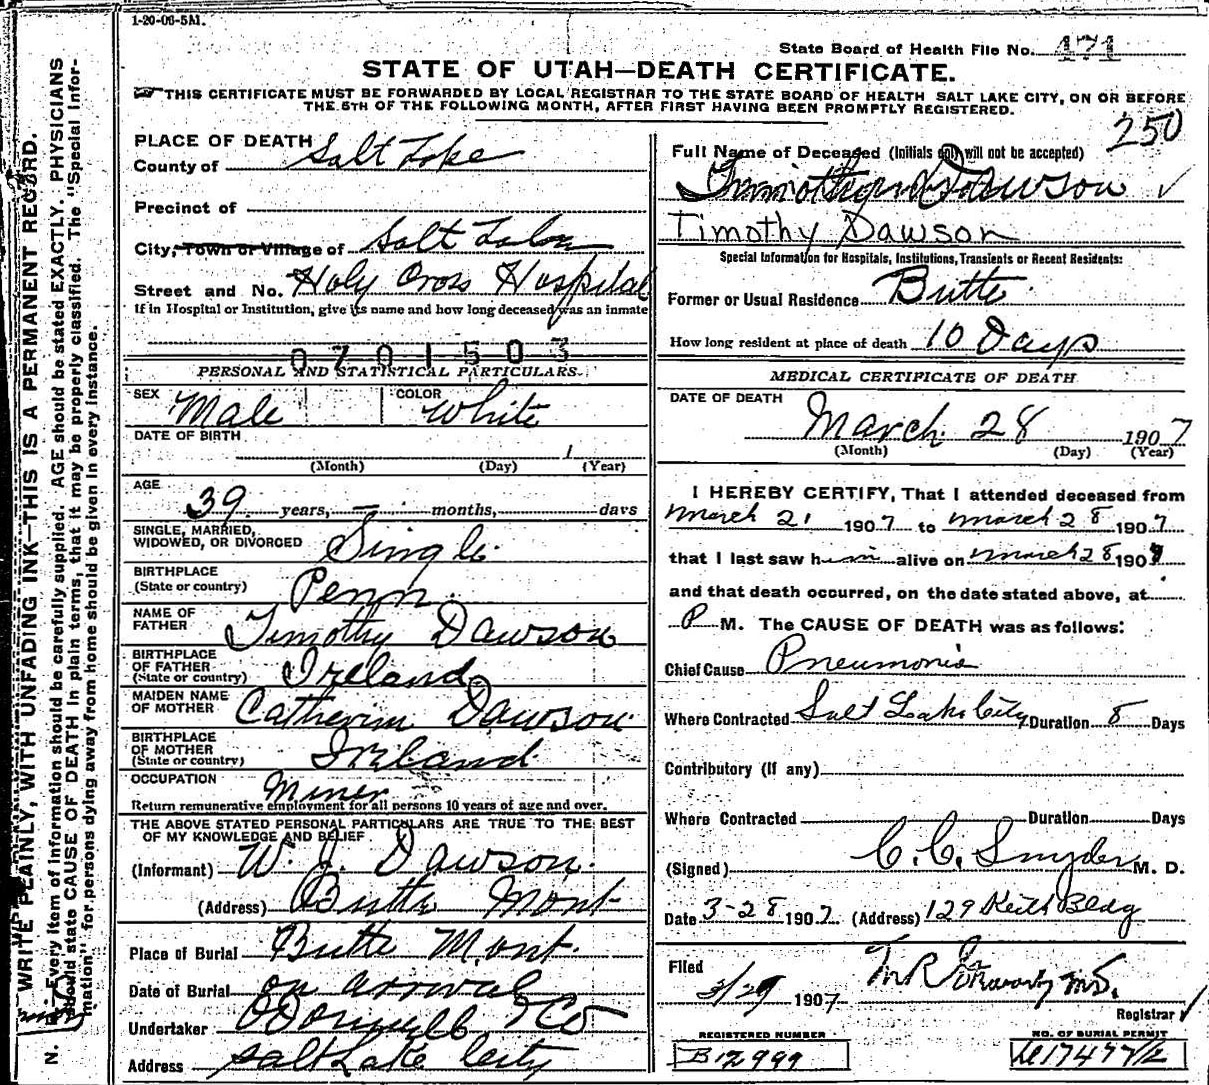 1-20-06-5M.
State Board of Health File No. 471
STATE OF UTAH—DEATH CERTIFICATE.
THIS CERTIFICATE MUST BE FORWARDED BY LOCAL REGISTRAR TO THE STATE BOARD OF HEALTH SALT LAKE CITY, ON OR BEFORE
THE 5TH OF THE FOLLOWING MONTH, AFTER FIRST HAVING BEEN PROMPTLY REGISTERED.
250
WRITE PLAINLY, WITH UNFADING INK—THIS IS A PERMANENT RECORD.
N. B.—Every item of information should be carefully supplied. AGE should be stated EXACTLY. PHYSICIANS
should state CAUSE OF DEATH in plain terms, that it may be properly classified. The "Special Infor-
mation" for persons dying away from home should be given in every instance.
PLACE OF DEATH
County of Salt Lake
Precinct of
City, Town or Village of Salt Lake
Street and No. Holy Cross Hospital
If in Hospital or Institution, give its name and how long deceased was an inmate
0701503
PERSONAL AND STATISTICAL PARTICULARS.
SEX Male COLOR White
DATE OF BIRTH
(Month) (Day) (Year)
AGE
39 years, — months, days
SINGLE, MARRIED,
WIDOWED, OR DIVORCED Single
BIRTHPLACE
(State or country) Penn.
NAME OF
FATHER Timothy Dawson
BIRTHPLACE
OF FATHER
(State or country) Ireland
MAIDEN NAME
OF MOTHER Catherine Dawson
BIRTHPLACE
OF MOTHER
(State or country) Ireland
OCCUPATION Miner
Return remunerative employment for all persons 10 years of age and over.
THE ABOVE STATED PERSONAL PARTICULARS ARE TRUE TO THE BEST
OF MY KNOWLEDGE AND BELIEF
(Informant) W. J. Dawson.
(Address) Butte Mont
Place of Burial Butte Mont.
Date of Burial on arrival
Undertaker O'Donnell & Co
Address Salt Lake City
Full Name of Deceased (Initials only will not be accepted)
Timothy Dawson
Timothy Dawson
Special Information for Hospitals, Institutions, Transients or Recent Residents:
Former or Usual Residence Butte
How long resident at place of death 10 Days
MEDICAL CERTIFICATE OF DEATH
DATE OF DEATH
March 28 1907
(Month) (Day) (Year)
I HEREBY CERTIFY, That I attended deceased from
March 21 1907 to March 28 1907
that I last saw him alive on March 28 1907
and that death occurred, on the date stated above, at
P M. The CAUSE OF DEATH was as follows:
Chief Cause Pneumonia
Where Contracted Salt Lake City Duration 8 Days
Contributory (If any)
Where Contracted Duration Days
(Signed) C. C. Snyder M. D.
Date 3-28 1907 (Address) 129 Keith Bldg
Filed
3/29 1907 M.D.
Registrar
REGISTERED NUMBER
B12999
NO. OF BURIAL PERMIT